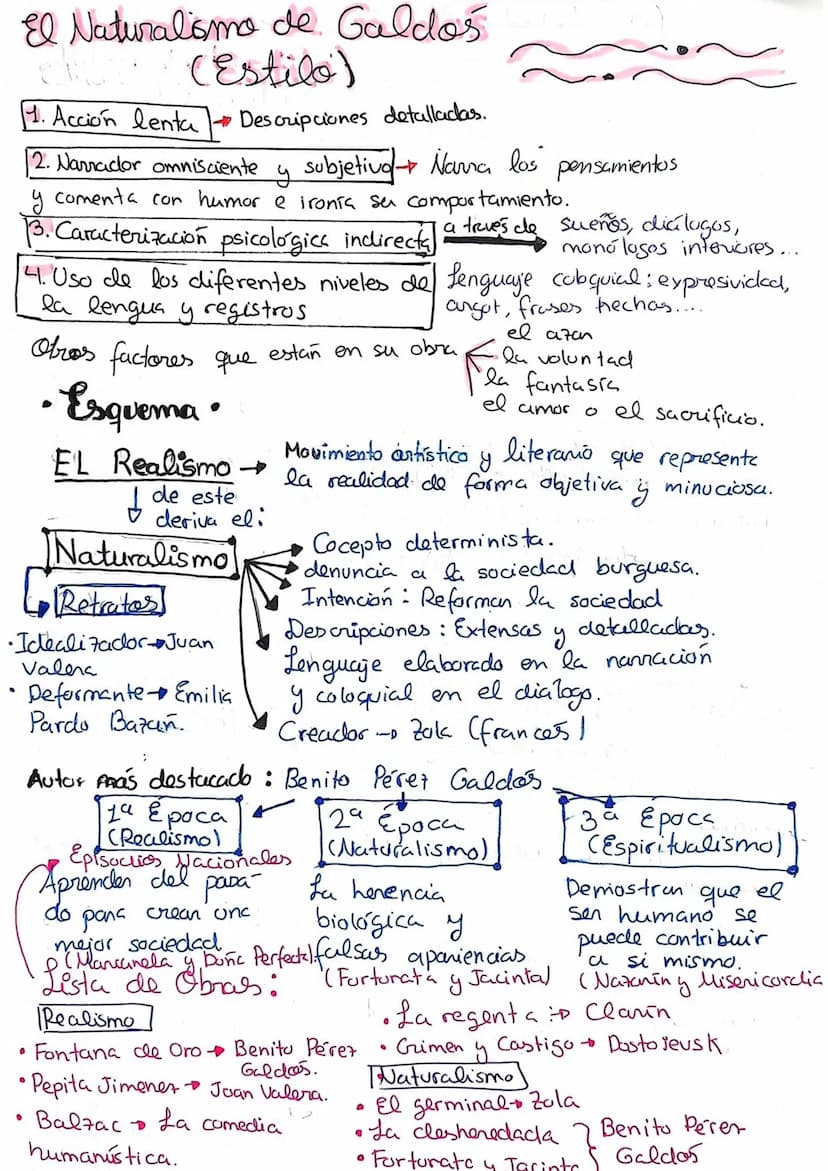 El Naturalismo de Galdós
(Estilo)
1. Acción lenta → Descripciones detalladas.
2. Narrador omnisciente y subjetivo → Narra los pensamientos
y comenta con humor e ironía su comportamiento.
3. Caracterización psicológica indirecta a través de sueños, diálogos,
monólogos interiores...
4. Uso de los diferentes niveles de
la lengua y registros
Lenguaje coloquial: expresividad,
argot, frases hechas....
Otros factores que están en su obra
el azar
la voluntad
la fantasía
el amor o el sacrificio.
• Esquema •
EL Realismo → Movimiento artístico y literario que representa
la realidad de forma objetiva y minuciosa.
de este
deriva el:
Naturalismo
Cocepto determinista.
denuncia a la sociedad burguesa.
Intención: Reforman la sociedad
Descripciones: Extensas y detalladas.
Lenguaje elaborado en la narración
y coloquial en el diálogo.
Creador → Zola (francés)
Retratos
• Idealizador → Juan
Valera
• Deformante → Emilia
Pardo Bazán.
Autor más destacado: Benito Pérez Galdós
1ª Época
(Realismo)
Episodios Nacionales
Aprender del pasa-
do para crear una
mejor sociedad
(Marianela y Doña Perfecta)
2ª Época
(Naturalismo)
La herencia
biológica y
falsas apariencias
(Fortunata y Jacinta)
3ª Época
(Espiritualismo)
Demostrar que el
ser humano se
puede contribuir
a si mismo.
(Nazarín y Misericordia
Lista de Obras:
Realismo
• Fontana de Oro → Benito Pérez
Galdós.
• Pepita Jimenez → Juan Valera.
• Balzac → La comedia
humanística.
• La regenta → Clarín
• Crimen y Castigo → Dostoievsk
Naturalismo
• El germinal → Zola
• La desheredada
• Fortunata y Jacinta
Benito Pérez
Galdós